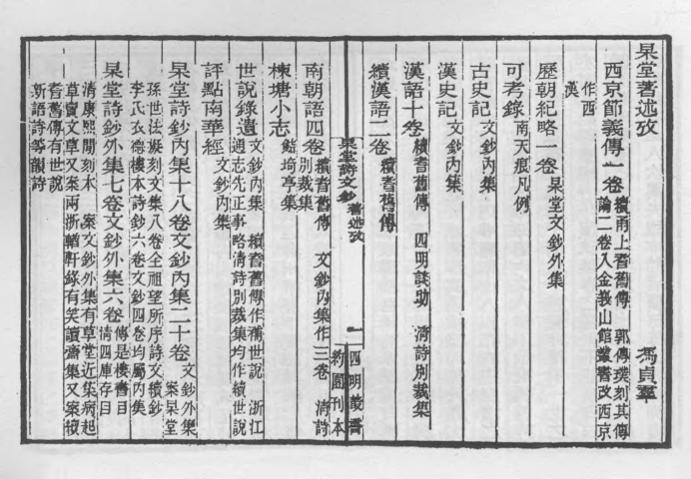 杲堂著述攷
馮貞羣
西京節義傳一卷 續甬上耆舊傳 郭傳璞刻其傳
論二卷入金峩山館叢書改西京
作西
漢
歷朝紀略一卷 杲堂文鈔外集
可考錄 南天痕凡例
古史記 文鈔內集
漢史記 文鈔內集
漢語十卷 續耆舊傳 四明談助 清詩別裁集
續漢語二卷 續耆舊傳
杲堂詩文鈔 著述攷 一 四明叢書 約園刊本
南朝語四卷 續耆舊傳 文鈔內集作三卷 清詩
別裁集
棟塘小志 鮚埼亭集
世說錄遺 文鈔內集 續耆舊傳作舊世說 浙江
通志先正事略清詩別裁集均作續世說
評點南華經 文鈔內集
杲堂詩鈔內集十八卷文鈔內集二十卷 文鈔外集
案杲堂
孫世法凝刻文集八卷全祖望所序詩文續鈔
李氏衣德樓本詩鈔六卷文鈔四卷均屬內集
杲堂詩鈔外集七卷文鈔外集六卷 傳是樓書目
清四庫存目
清康熙閒刻本 案文鈔外集有草堂近集病起
草賣文草又案兩浙輶軒錄有笑讀齋集又案續
耆舊傳有世說
新語詩等韻詩